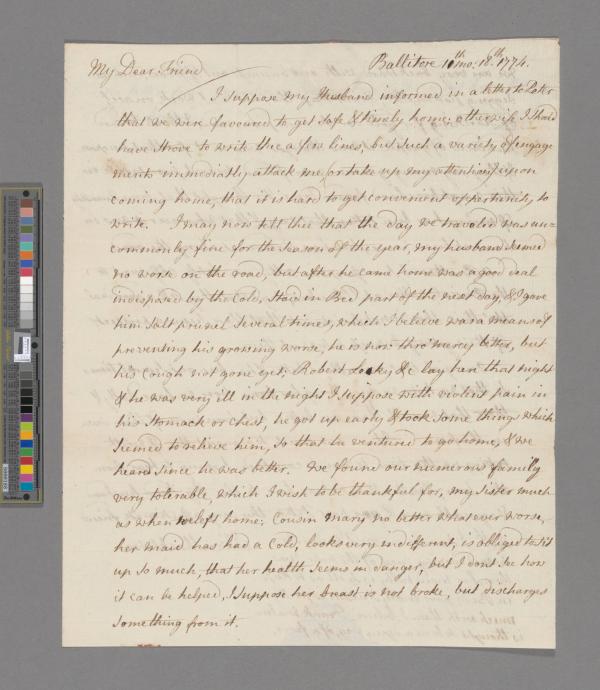 Ballitore 11th mo: 18th 1774.
My Dear Friend
I suppose my Husband informed in a letter to Peter
that we were favoured to get safe & timely home; otherwise I should
have strove to write thee a few lines, but such a variety of engage
ments immediatly attack me, or take up my attention, upon
coming home, that it is hard to get convenient opportunity, to
write. I may now tell thee that the day we traveled was un=
commonly fine for the season of the year, my husband seemed
no worse on the road, but after he came home was a good deal
indisposed by the Cold, staid in Bed part of the next day, & I gave
him Salt prunel several times, which I believe was a means of
preventing his growing worse, he is now thro' mercy better, but
his cough not gone yet; Robert &c lay here that night
& he was very ill in the night I suppose with violent pain in
his Stomack or Chest, he got up early & took some things which
seemed to relieve him, so that he ventured to go home, & we
heard since he was better. We found our numerous family
very tolerable, which I wish to be thankful for, my Sister much
as when we left home; Cousin Mary no better whatever worse,
her maid has had a Cold, looks very indifferent, is obliged to sit
up so much, that her health seems in danger, but I don't see how
it can be helped, I suppose her breast is not broke, but discharges
something from it.